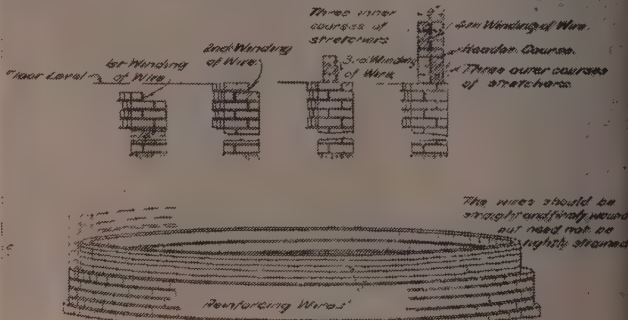 Three inner
courses of
stretchers
4th Winding of Wire.
Header Course.
Three outer courses
of stretchers.
2nd Winding
of Wire.
3rd Winding
of Wire
1st Winding
of Wire.
Floor Level
The wires should be
straight and firmly wound
but need not be
tightly strained
Reinforcing Wires